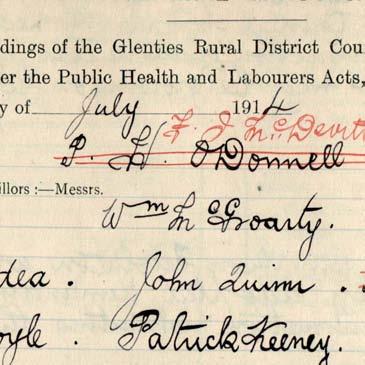 dings of the Glenties Rural District Cou
er the Public Health and Labourers Acts,
y of July 1914
F. J. McDevitt
P. H. O'Donnell
illors :—Messrs.
Wm McGroarty.
dea . John Quinn .
oyle . Patrick Keeney.